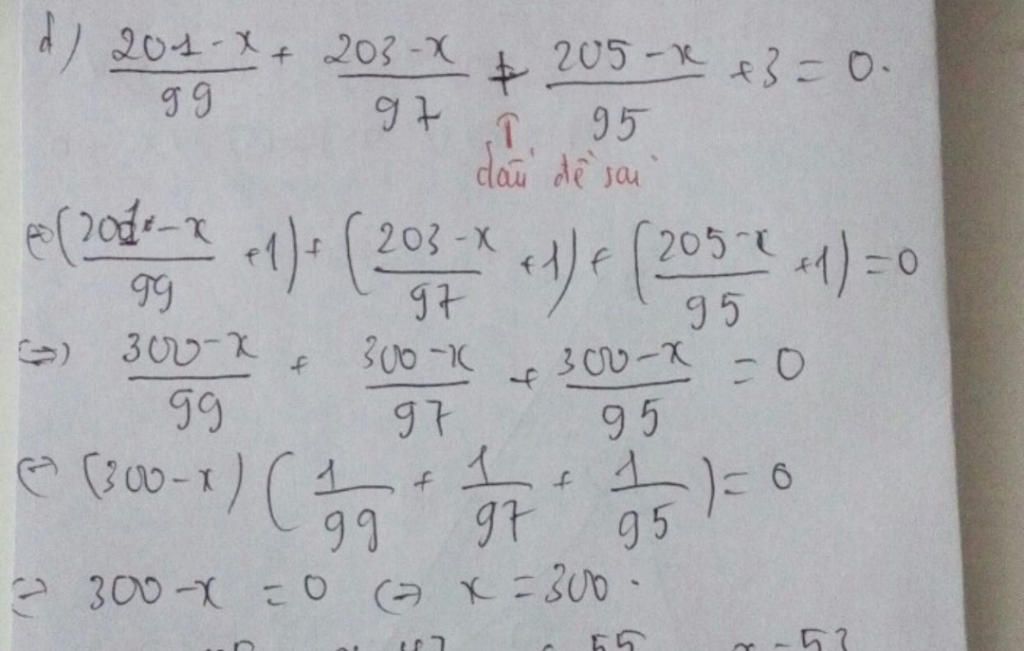 d) (201 - x)/99 + (203 - x)/97 + (205 - x)/95 + 3 = 0.
↑
dấu đề sai
⇔ ((201 - x)/99 + 1) + ((203 - x)/97 + 1) + ((205 - x)/95 + 1) = 0
⇔ (300 - x)/99 + (300 - x)/97 + (300 - x)/95 = 0
⇔ (300 - x) (1/99 + 1/97 + 1/95) = 0
⇔ 300 - x = 0 ⇔ x = 300.